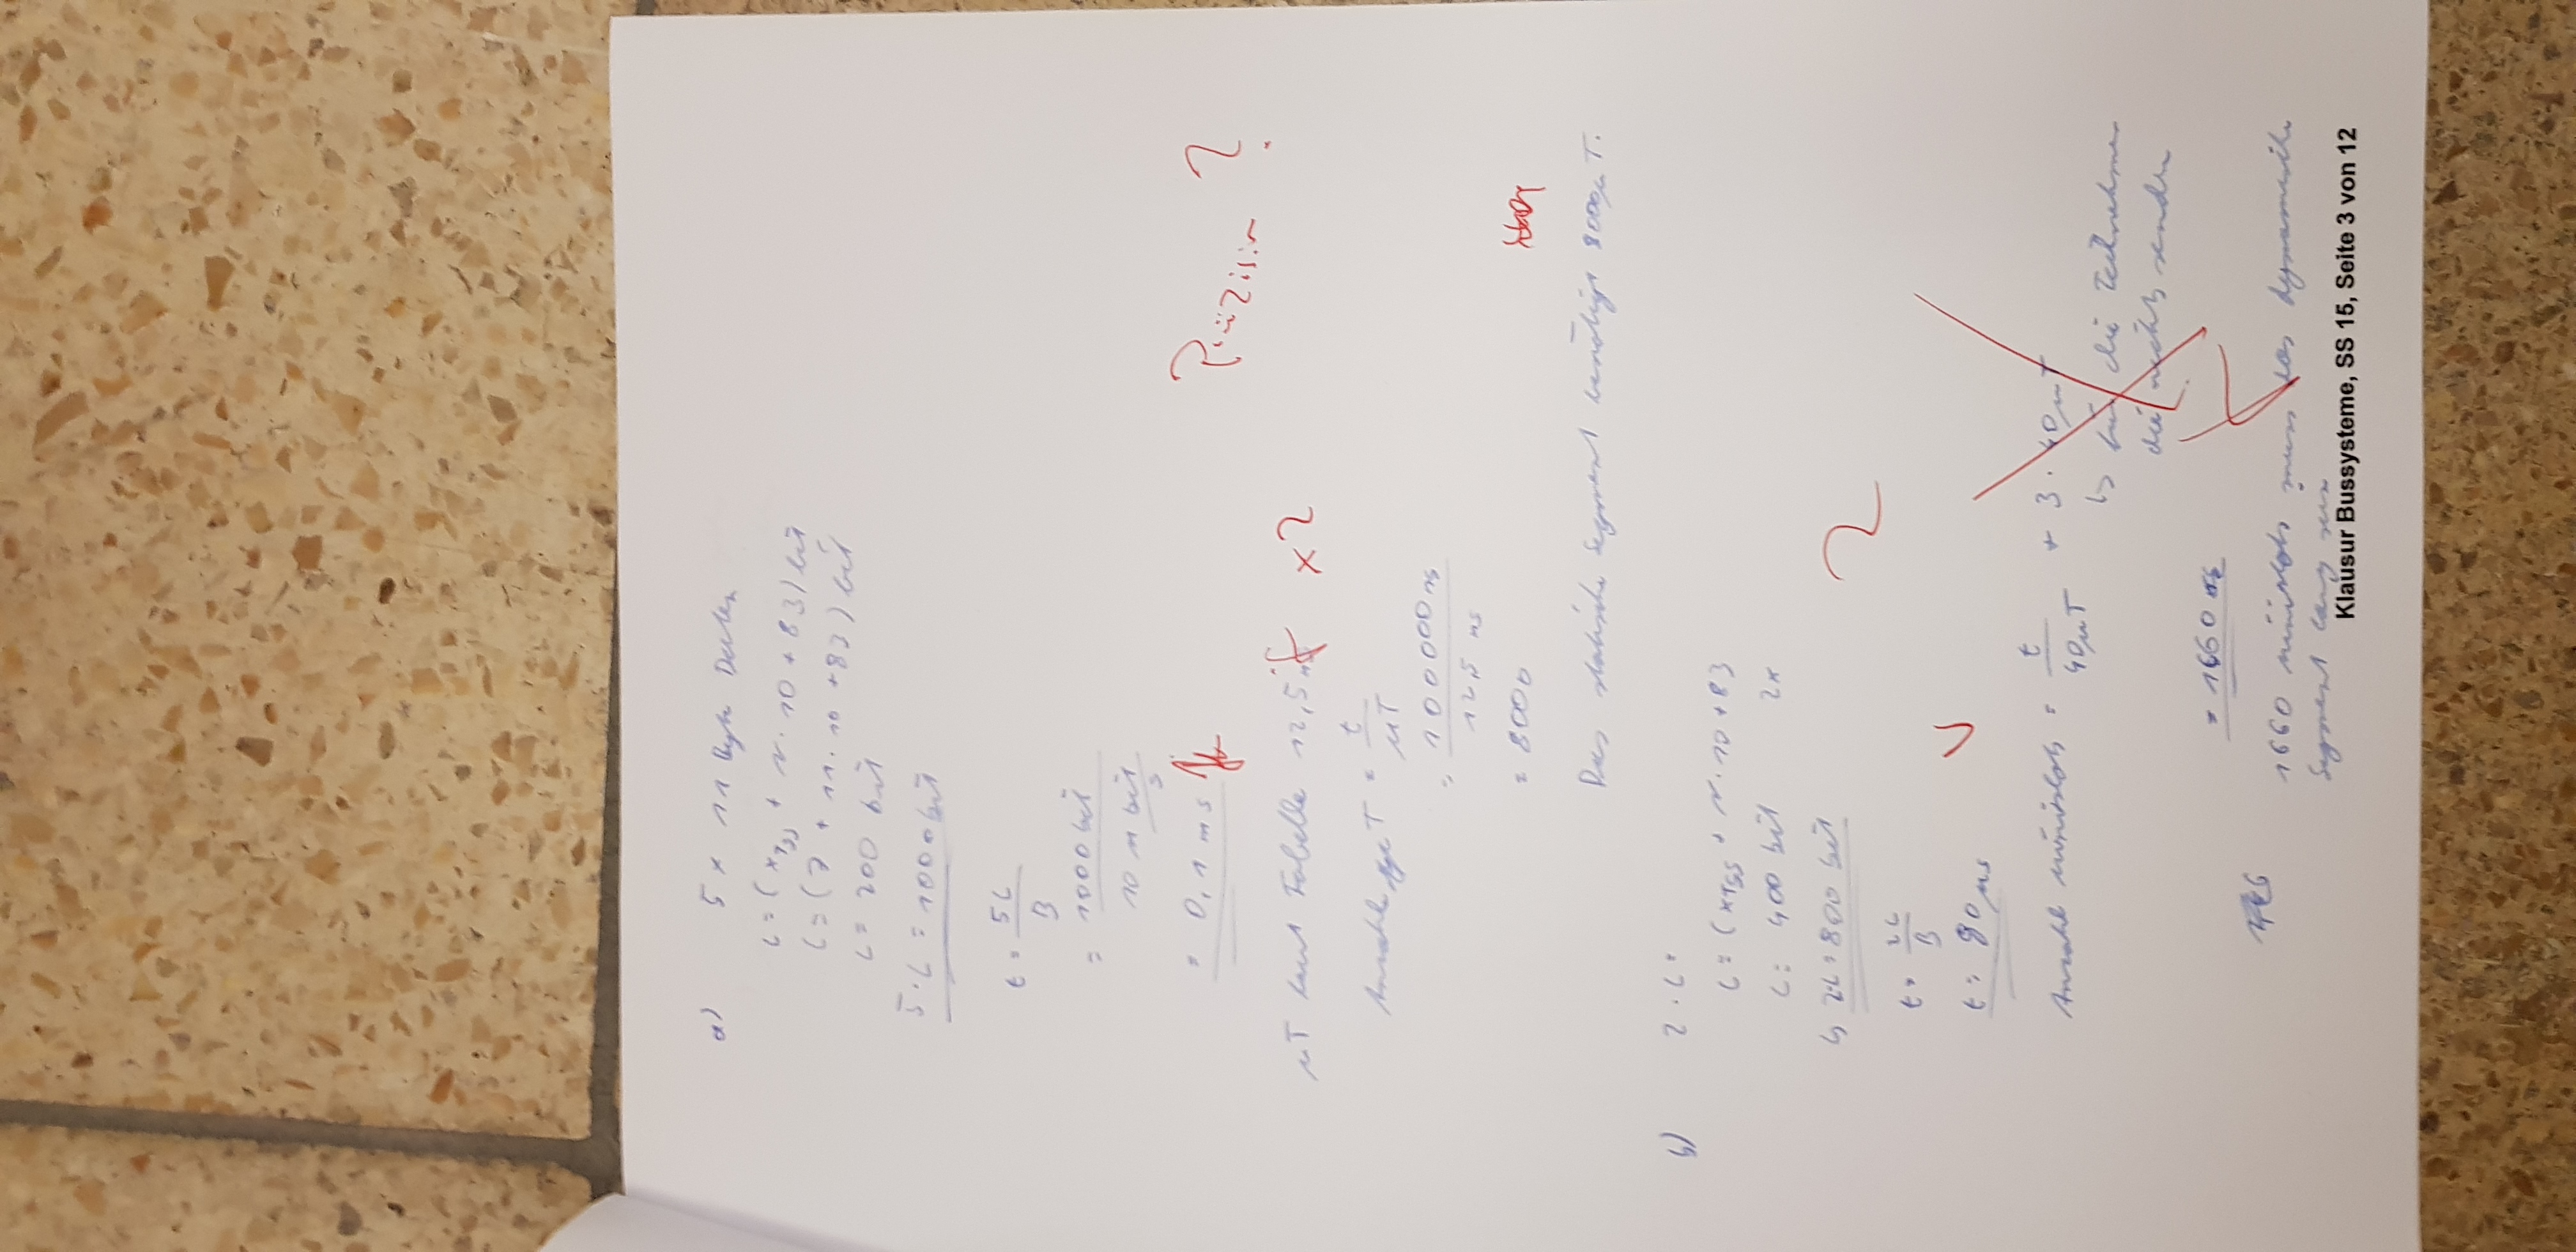 a) 5 x 11 Byte Daten
L = (xTSS + N · 10 + 83) bit
L = (7 + 11 · 10 + 83) bit
L = 200 bit
5 · L = 1000 bit
t = 5L / B
= 1000 bit / 10 M bit/s
= 0,1 ms
Präzision ?
µT laut Tabelle 12,5 x2
Anzahl µT = t / µT
= 100000 ns / 12,5 ns
= 8000
Das statische Segment benötigt 8000 µT.
b) 2 · L =
L = (xTSS + N · 10 + 83
L = 400 bit 2x
↳ 2L = 800 bit
2
t = 2L / B
t = 80 µs
Anzahl minislots = t / 40µT + 3 · 40µT
↳ für die Teilnehmer
die nichts senden
= 1660
1660 minislots muss das dynamische
Segment lang sein
Klausur Bussysteme, SS 15, Seite 3 von 12